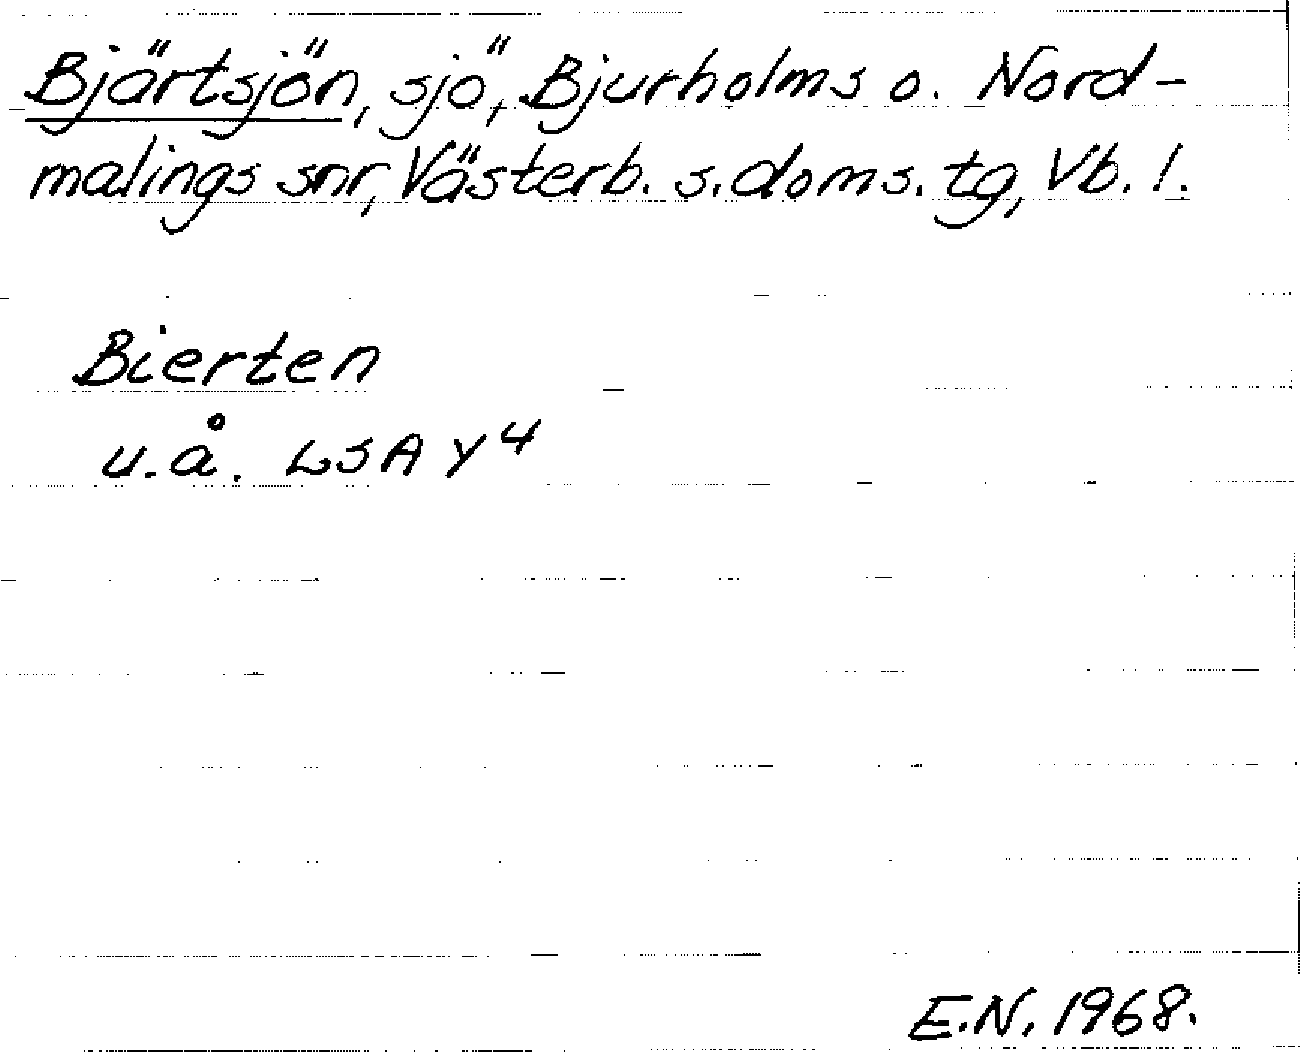 Bjärtsjön, sjö, Bjurholms o. Nord-
malings snr, Västerb. s. doms. tg, Vb. l.
Bierten
u.å. LSA Y4
E.N. 1968.